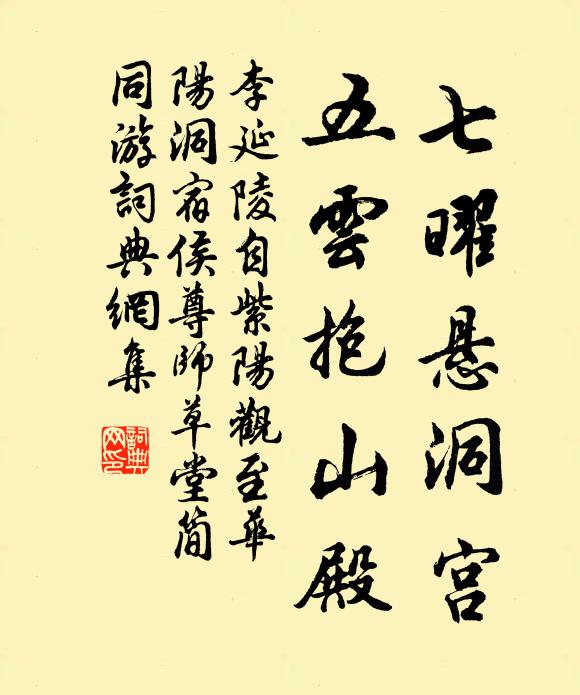 七曜悬洞宫
五雲抱山殿
李延陵自紫陽觀至華
陽洞宿侯尊師草堂简
同游詞典網集
詞典
网印